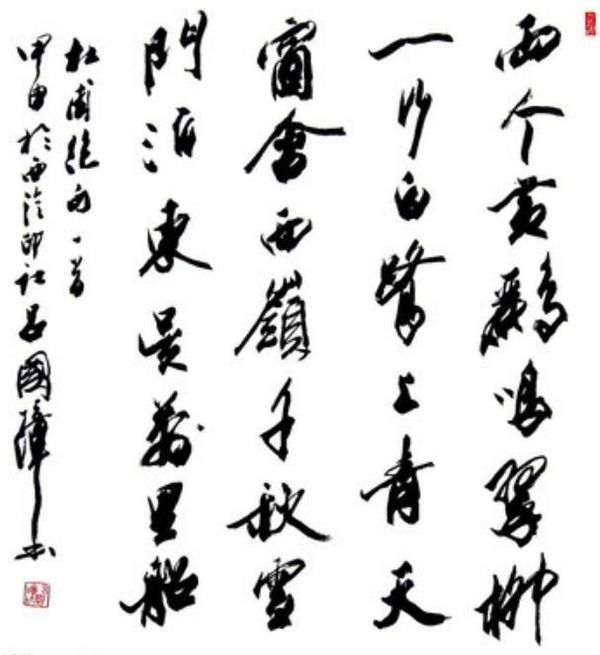 兩个黃鸝鳴翠柳
一行白鷺上青天
窗含西嶺千秋雪
門泊東吳萬里船
杜甫絕句一首
甲申於西泠印社呂國璋書